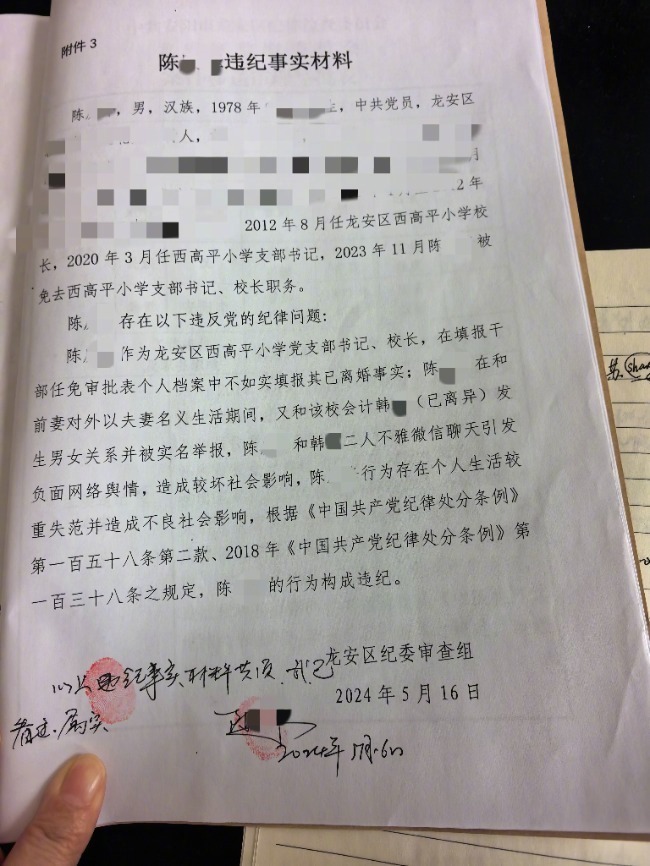 附件3
陈 违纪事实材料
陈 ,男,汉族,1978年 生,中共党员,龙安区
人,
月
2年
2012年8月任龙安区西高平小学校
长,2020年3月任西高平小学支部书记,2023年11月陈 被
免去西高平小学支部书记、校长职务。
陈 存在以下违反党的纪律问题:
陈 作为龙安区西高平小学党支部书记、校长,在填报干
部任免审批表个人档案中不如实填报其已离婚事实;陈 在和
前妻对外以夫妻名义生活期间,又和该校会计韩 (已离异)发
生男女关系并被实名举报,陈 和韩 二人不雅微信聊天引发
负面网络舆情,造成较坏社会影响,陈 行为存在个人生活较
重失范并造成不良社会影响,根据《中国共产党纪律处分条例》
第一百五十八条第二款、2018年《中国共产党纪律处分条例》第
一百三十八条之规定,陈 的行为构成违纪。
龙安区纪委审查组
2024年5月16日
以上违纪事实材料共 页,我已
看过,属实
2024年5月16日